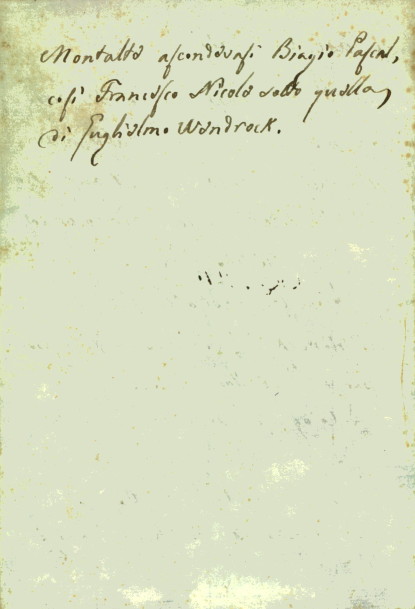 Montalto ascondevasi Biagio Pascal,
cosi Francesco Nicole sotto quella
di Guglielmo Wendrock.